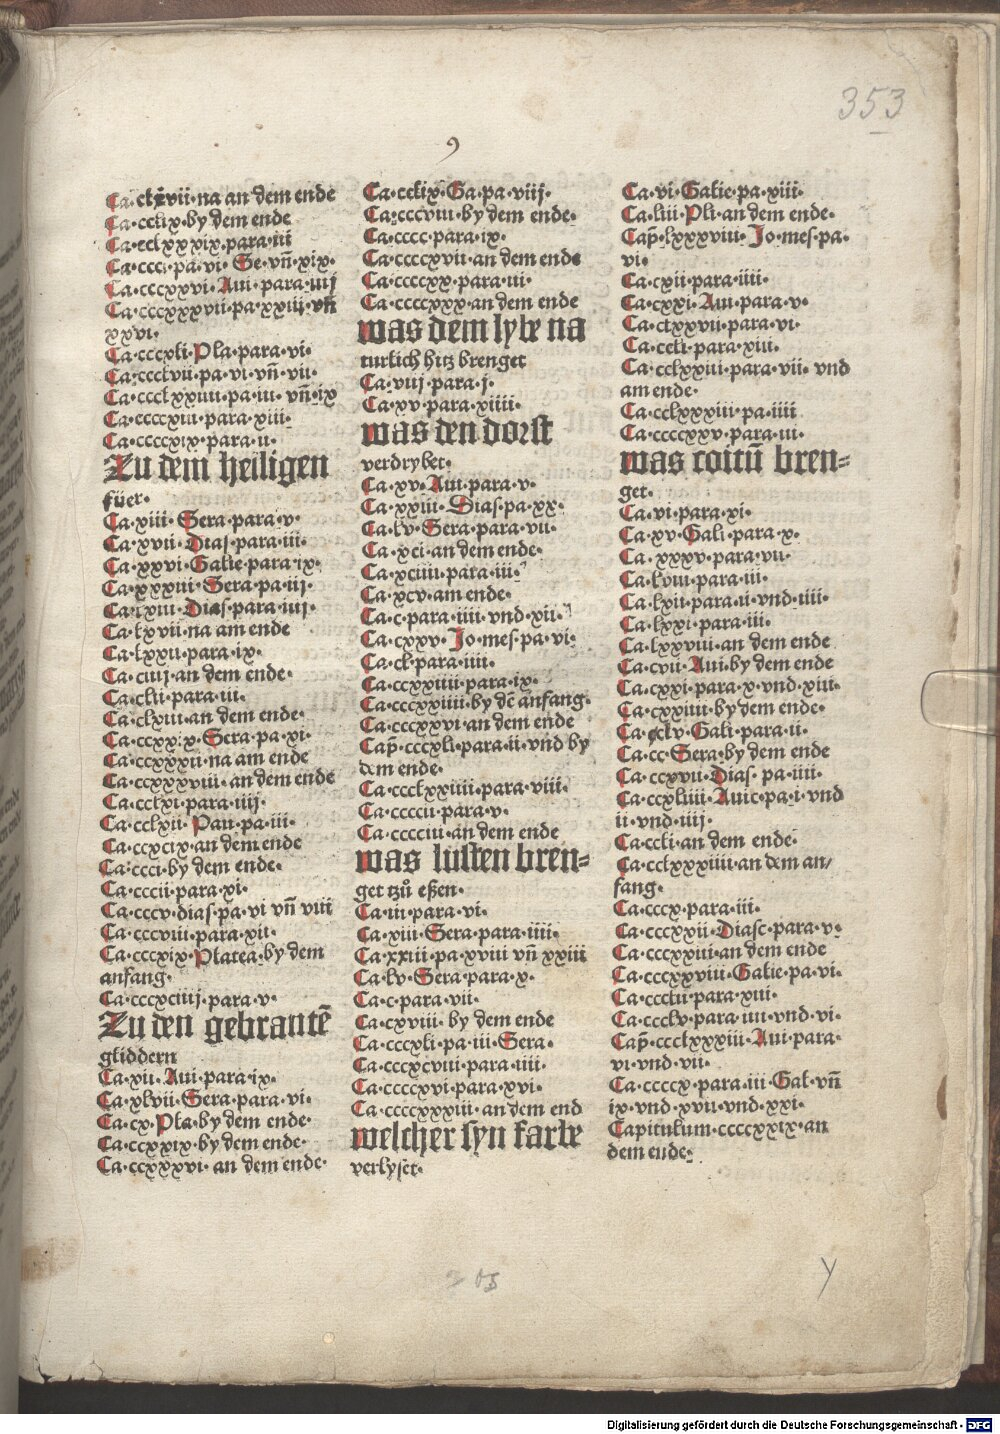 353
9
Ca·clxvii·na an dem ende
Ca·cclix·by dem ende
Ca·cclxxxix·para·iii
Ca·ccc·pa·vi· Se·vñ·xix·
Ca·cccxxvi·Aui·para·iiij
Ca·cccxxxvii·pa·xxiii·vñ
xxvi·
Ca·cccxli·Pla·para·vi·
Ca·ccclvii·pa·vi·vñ·vii·
Ca·ccclxxiiii·pa·iii·vñ·ix
Ca·ccccxiii·para·xiii·
Ca·ccccxix·para·ii·
Zu dem heiligen
füer·
Ca·xiii·Sera·para·v·
Ca·xvii·Dias·para·iii·
Ca·xxvi·Galie·para·ix·
Ca·xxxiii·Sera·pa·iij·
Ca·lxiii·Dias·para·iiij·
Ca·lxvii·na am ende
Ca·lxxii·para·ix·
Ca·ciiij·an dem ende·
Ca·clii·para·iii·
Ca·clxiii·an dem ende·
Ca·ccxxix·Sera·pa·xi·
Ca·ccxxxii·na am ende
Ca·ccxxxviii·an dem ende
Ca·cclxi·para·iiij·
Ca·cclxii·Pau·pa·iii·
Ca·ccxcix·an dem ende
Ca·ccci·by dem ende·
Ca·cccii·para·xi·
Ca·cccv·dias·pa·vi vñ viii
Ca·cccviii·para·xii·
Ca·cccxix·Platea·by dem
anfang·
Ca·cccxciiij·para·v·
Zu den gebrantē
gliddern
Ca·xii·Aui·para·ix·
Ca·xlvii·Sera·para·vi·
Ca·cx·Pla·by dem ende·
Ca·ccxxix·by dem ende·
Ca·ccxxxvi·an dem ende·
Ca·cclix·Ga·pa·viij·
Ca·cccviii·by dem ende·
Ca·cccc·para·ix·
Ca·ccccxvii·an dem ende
Ca·ccccxx·para·iii·
Ca·ccccxxx·an dem ende
was dem lybe na
turlich hitz brenget
Ca·viij·para·j·
Ca·xv·para·xiiii·
was den dorst
verdrybet·
Ca·xv·Aui·para·v·
Ca·xxiii·Dias·pa·xx·
Ca·lv·Sera·para·vii·
Ca·xci·an dem ende·
Ca·xciiii·para·iii·
Ca·xcv·am ende·
Ca·c·para·iiii·vnd·xii·
Ca·cxxv·Jo·mes·pa·vi·
Ca·cl·para·iiii·
Ca·ccxxiiii·para·ix·
Ca·cccxxiiii·by dē anfang·
Ca·cccxxvi·an dem ende
Cap̄·cccxli·para·ii·vnd by
dem ende·
Ca·ccclxxiiii·para·viii·
Ca·ccccii·para·v·
Ca·cccciii·an dem ende
was lusten bren⸗
get tzů eßen·
Ca·iii·para·vi·
Ca·xiii·Sera·para·iiii·
Ca·xxiii·pa·xviii vñ xxiii
Ca·lv·Sera·para·x·
Ca·c·para·vii·
Ca·cxviii·by dem ende
Ca·cccxli·pa·iii·Sera·
Ca·cccxcviii·para·iiii·
Ca·ccccxvi·para·xvi·
Ca·ccccxxxiii·an dem end
welcher syn farbe
verlyset·
Ca·vi·Galie·pa·xiii·
Ca·liii·Pli·an dem ende·
Cap̄·lxxxviii·Jo·mes·pa·
vi·
Ca·cxii·para·iiii·
Ca·cxxi·Aui·para·v·
Ca·clxxvii·para·vi·
Ca·ccli·para·xiii·
Ca·cclxxiii·para·vii·vnd
am ende·
Ca·cclxxxiii·pa·iiii
Ca·ccccxxv·para·iii·
was coitū bren⸗
get·
Ca·vi·para·xi·
Ca·xv·Gali·para·x·
Ca·xxxv·para·vii·
Ca·lviii·para·iii·
Ca·lxii·para·ii·vnd·iiii·
Ca·lxxi·para·iii·
Ca·lxxviii·an dem ende
Ca·cvii·Aui·by dem ende
Ca·cxxi·para·x·vnd·xiii·
Ca·cxxiiii·by dem ende·
Ca·cclv·Gali·para·ii·
Ca·cc·Sera·by dem ende
Ca·ccxvii·Dias·pa·iiii·
Ca·ccxliiii·Auic·pa·i·vnd
ii·vnd·iiij·
Ca·ccli·an dem ende·
Ca·cclxxxiiii·an dem an/
fang·
Ca·cccx·para·iii·
Ca·cccxxii·Diasc·para·v·
Ca·cccxxiii·an dem ende
Ca·cccxxviii·Galie·pa·vi·
Ca·ccclii·para·xiii·
Ca·ccclv·para·iiii·vnd·vi·
Cap̄·ccclxxxiii·Aui·para·
vi·vnd·vii·
Ca·ccccx·para·iii·Gal·vñ
ix·vnd·xvii·vnd·xxi·
Capitulum·ccccxxix·an
dem ende·
y
Digitalisierung gefördert durch die Deutsche Forschungsgemeinschaft - DFG